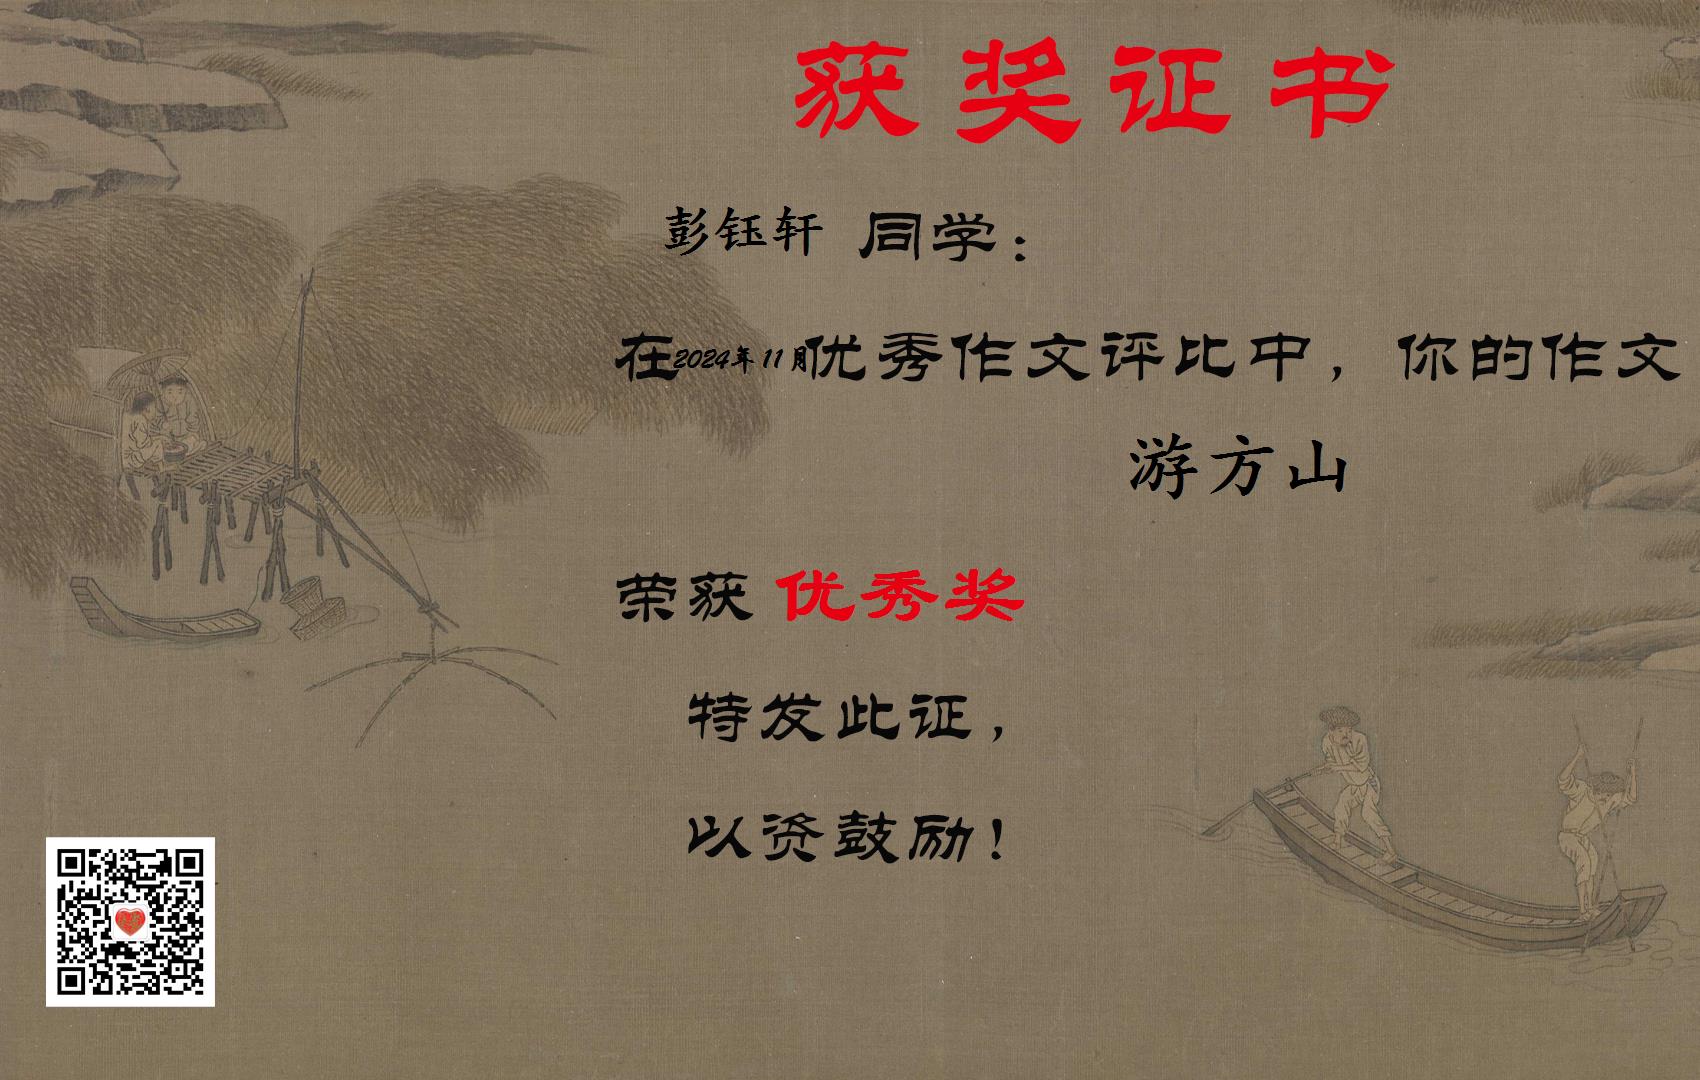 获奖证书
彭钰轩 同学：
在2024年11月优秀作文评比中，你的作文
游方山
荣获 优秀奖
特发此证，
以资鼓励！